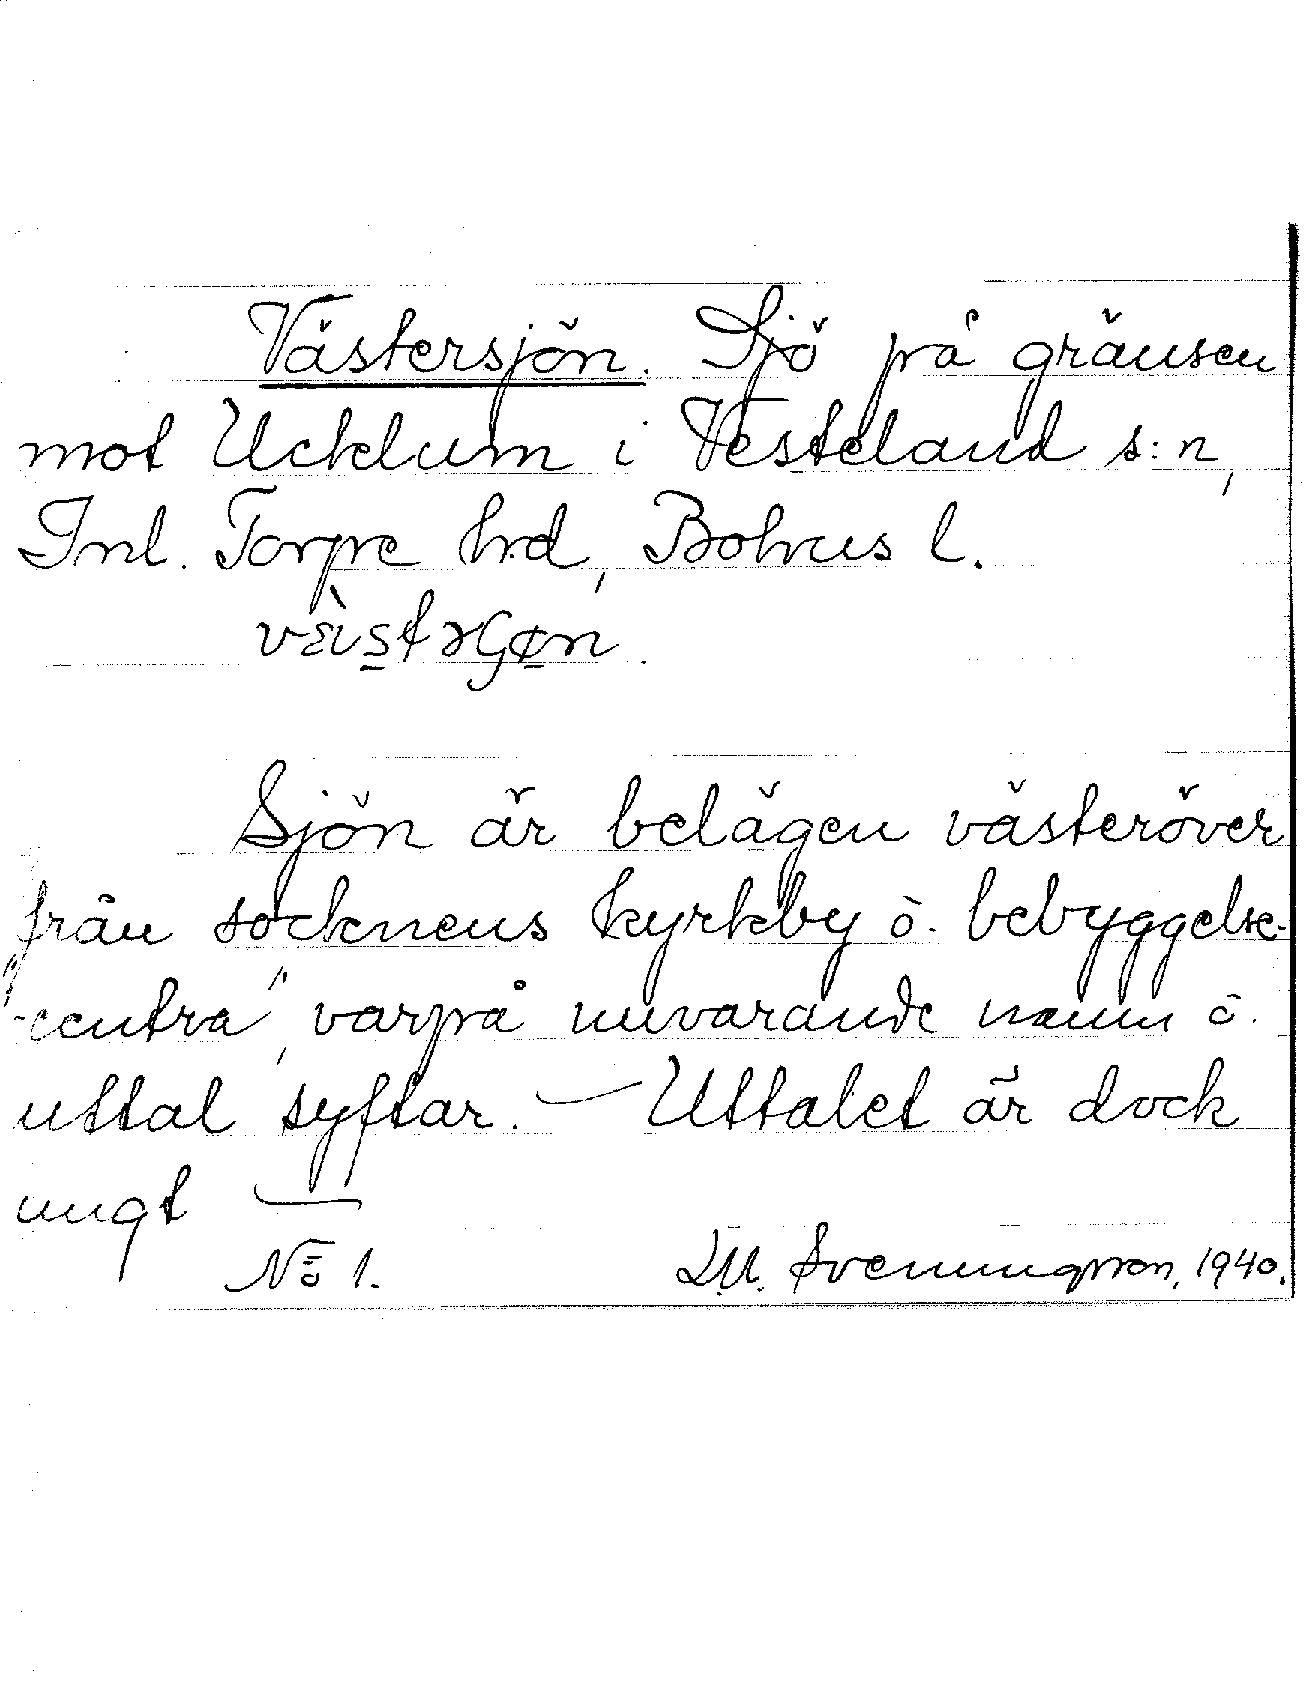 Västersjön. Sjö på gränsen
mot Ucklum i Vesteland s:n,
Inl. Torpe hrd, Bohus l.
vèstəɢøn.
Sjön är belägen västeröver
från socknens kyrkby o. bebyggelse-
"-centra", varpå nuvarande namn o.
uttal syftar. — Uttalet är dock
ungt —
No 1.
D.U. Svenningsson, 1940.